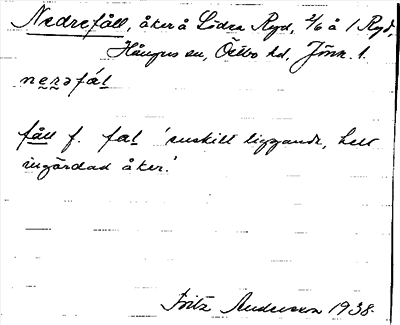 Nedrefåll, åker å Södra Ryd, 2/6 å 1 Ryd,
Hångers sn, Östbo hd, Jönk. l.
fåll f. fal 'enskilt liggande, helt
ingärdad åker.'
Fritz Andersson 1938.